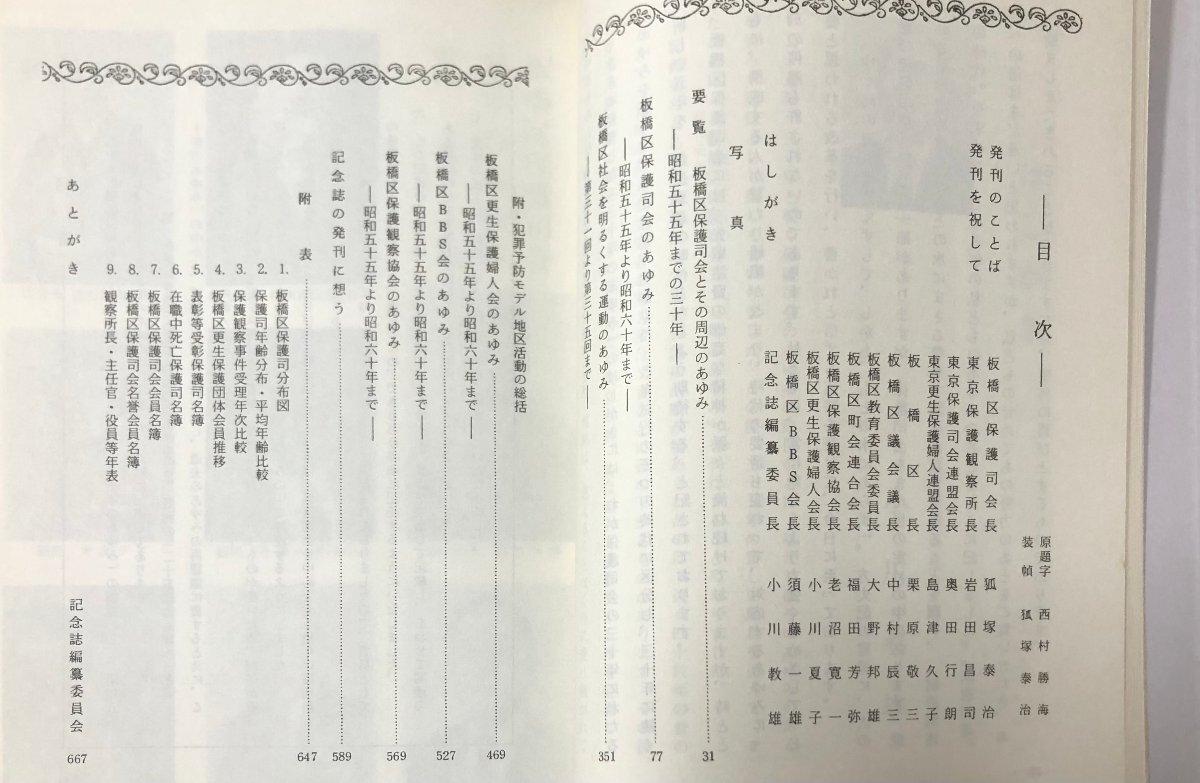 ―― 目次 ――
原題字 西村勝海
装幀 狐塚泰治
発刊のことば 板橋区保護司会長 狐塚泰治
発刊を祝して 東京保護観察所長 岩田昌司
東京保護司会連盟会長 奥田行朗
東京更生保護婦人連盟会長 島津久子
板橋区長 栗原敬三
板橋区議会議長 中村辰三
板橋区教育委員会委員長 大野邦雄
板橋区町会連合会長 福田芳弥
板橋区保護観察協会長 老沼寛一
板橋区更生保護婦人会長 小川夏子
板橋区BBS会長 須藤一雄
はしがき 記念誌編纂委員長 小川教雄
写真
要覧 板橋区保護司会とその周辺のあゆみ 31
――昭和五十五年までの三十年――
板橋区保護司会のあゆみ 77
――昭和五十五年より昭和六十年まで――
板橋区社会を明るくする運動のあゆみ 351
――第三十一回より第三十五回まで――
附・犯罪予防モデル地区活動の総括
板橋区更生保護婦人会のあゆみ 469
――昭和五十五年より昭和六十年まで――
板橋区BBS会のあゆみ 527
――昭和五十五年より昭和六十年まで――
板橋区保護観察協会のあゆみ 569
――昭和五十五年より昭和六十年まで――
記念誌の発刊に想う 589
附表 647
1. 板橋区保護司分布図
2. 保護司年齢分布・平均年齢比較
3. 保護観察事件受理年次比較
4. 板橋区更生保護団体会員推移
5. 表彰等受彰保護司名簿
6. 在職中死亡保護司名簿
7. 板橋区保護司会会員名簿
8. 板橋区保護司会名誉会員名簿
9. 観察所長・主任官・役員等年表
あとがき 記念誌編纂委員会 667